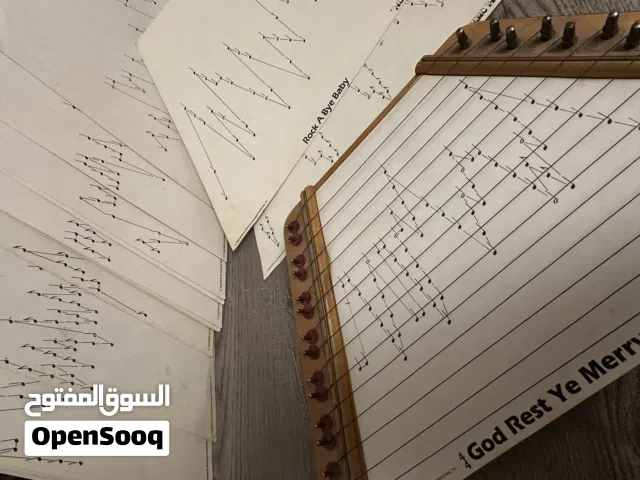 Rock A Bye Baby
God Rest Ye Merry
السوق المفتوح
OpenSooq